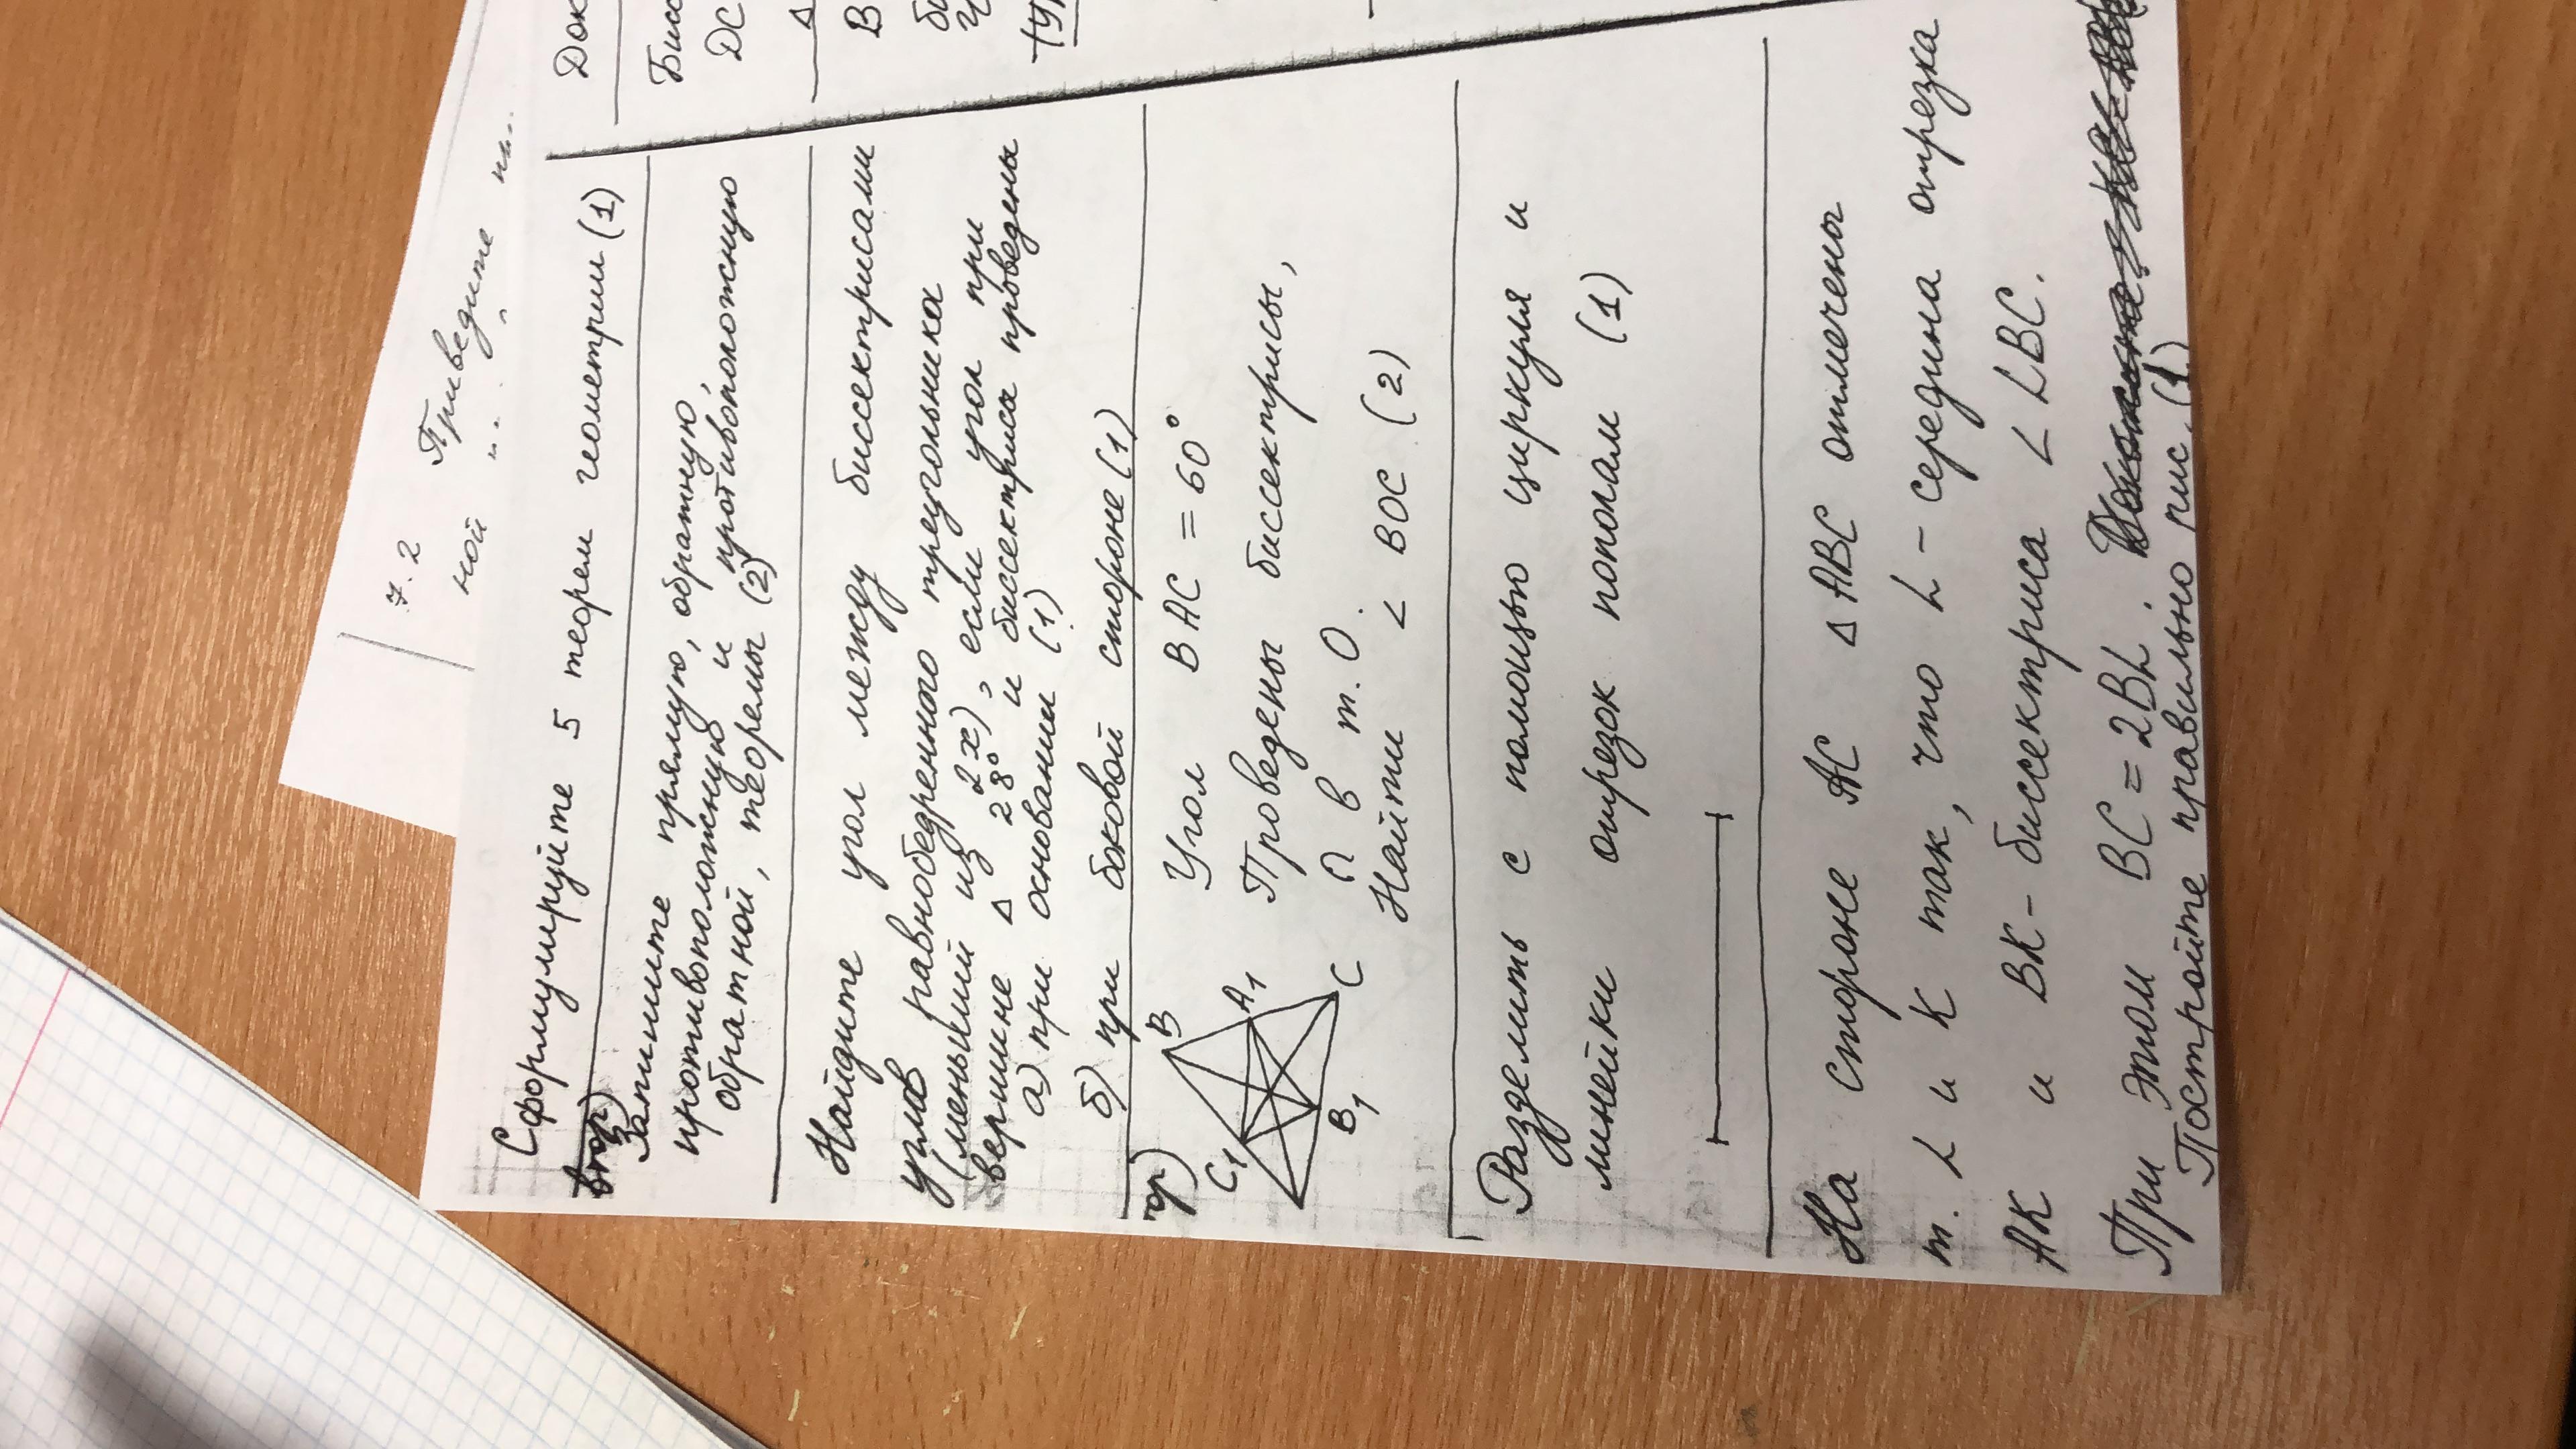 7.2 Приведите
ной
Док
Бисс
DC
Δ
В
Сформулируйте 5 теорем геометрии (1)
Запишите прямую, обратную,
противоположную и противоположную
обратной, теоремы (2)
Найдите угол между биссектрисами
углов равнобедренного треугольника
(меньший из 2х), если угол при
вершине Δ 28° и биссектриса проведены
а) при основании (1)
б) при боковой стороне (1)
Угол BAC = 60°
Проведены биссектрисы,
∩ в т. О.
Найти ∠ BOC (2)
B
C1
A1
B1
C
Разделить с помощью циркуля и
линейки отрезок пополам (1)
На стороне AC Δ ABC отмечены
т. L и K так, что L - середина отрезка
AK и BK - биссектриса ∠ LBC.
При этом BC = 2BL.
Постройте правильно рис. (1)